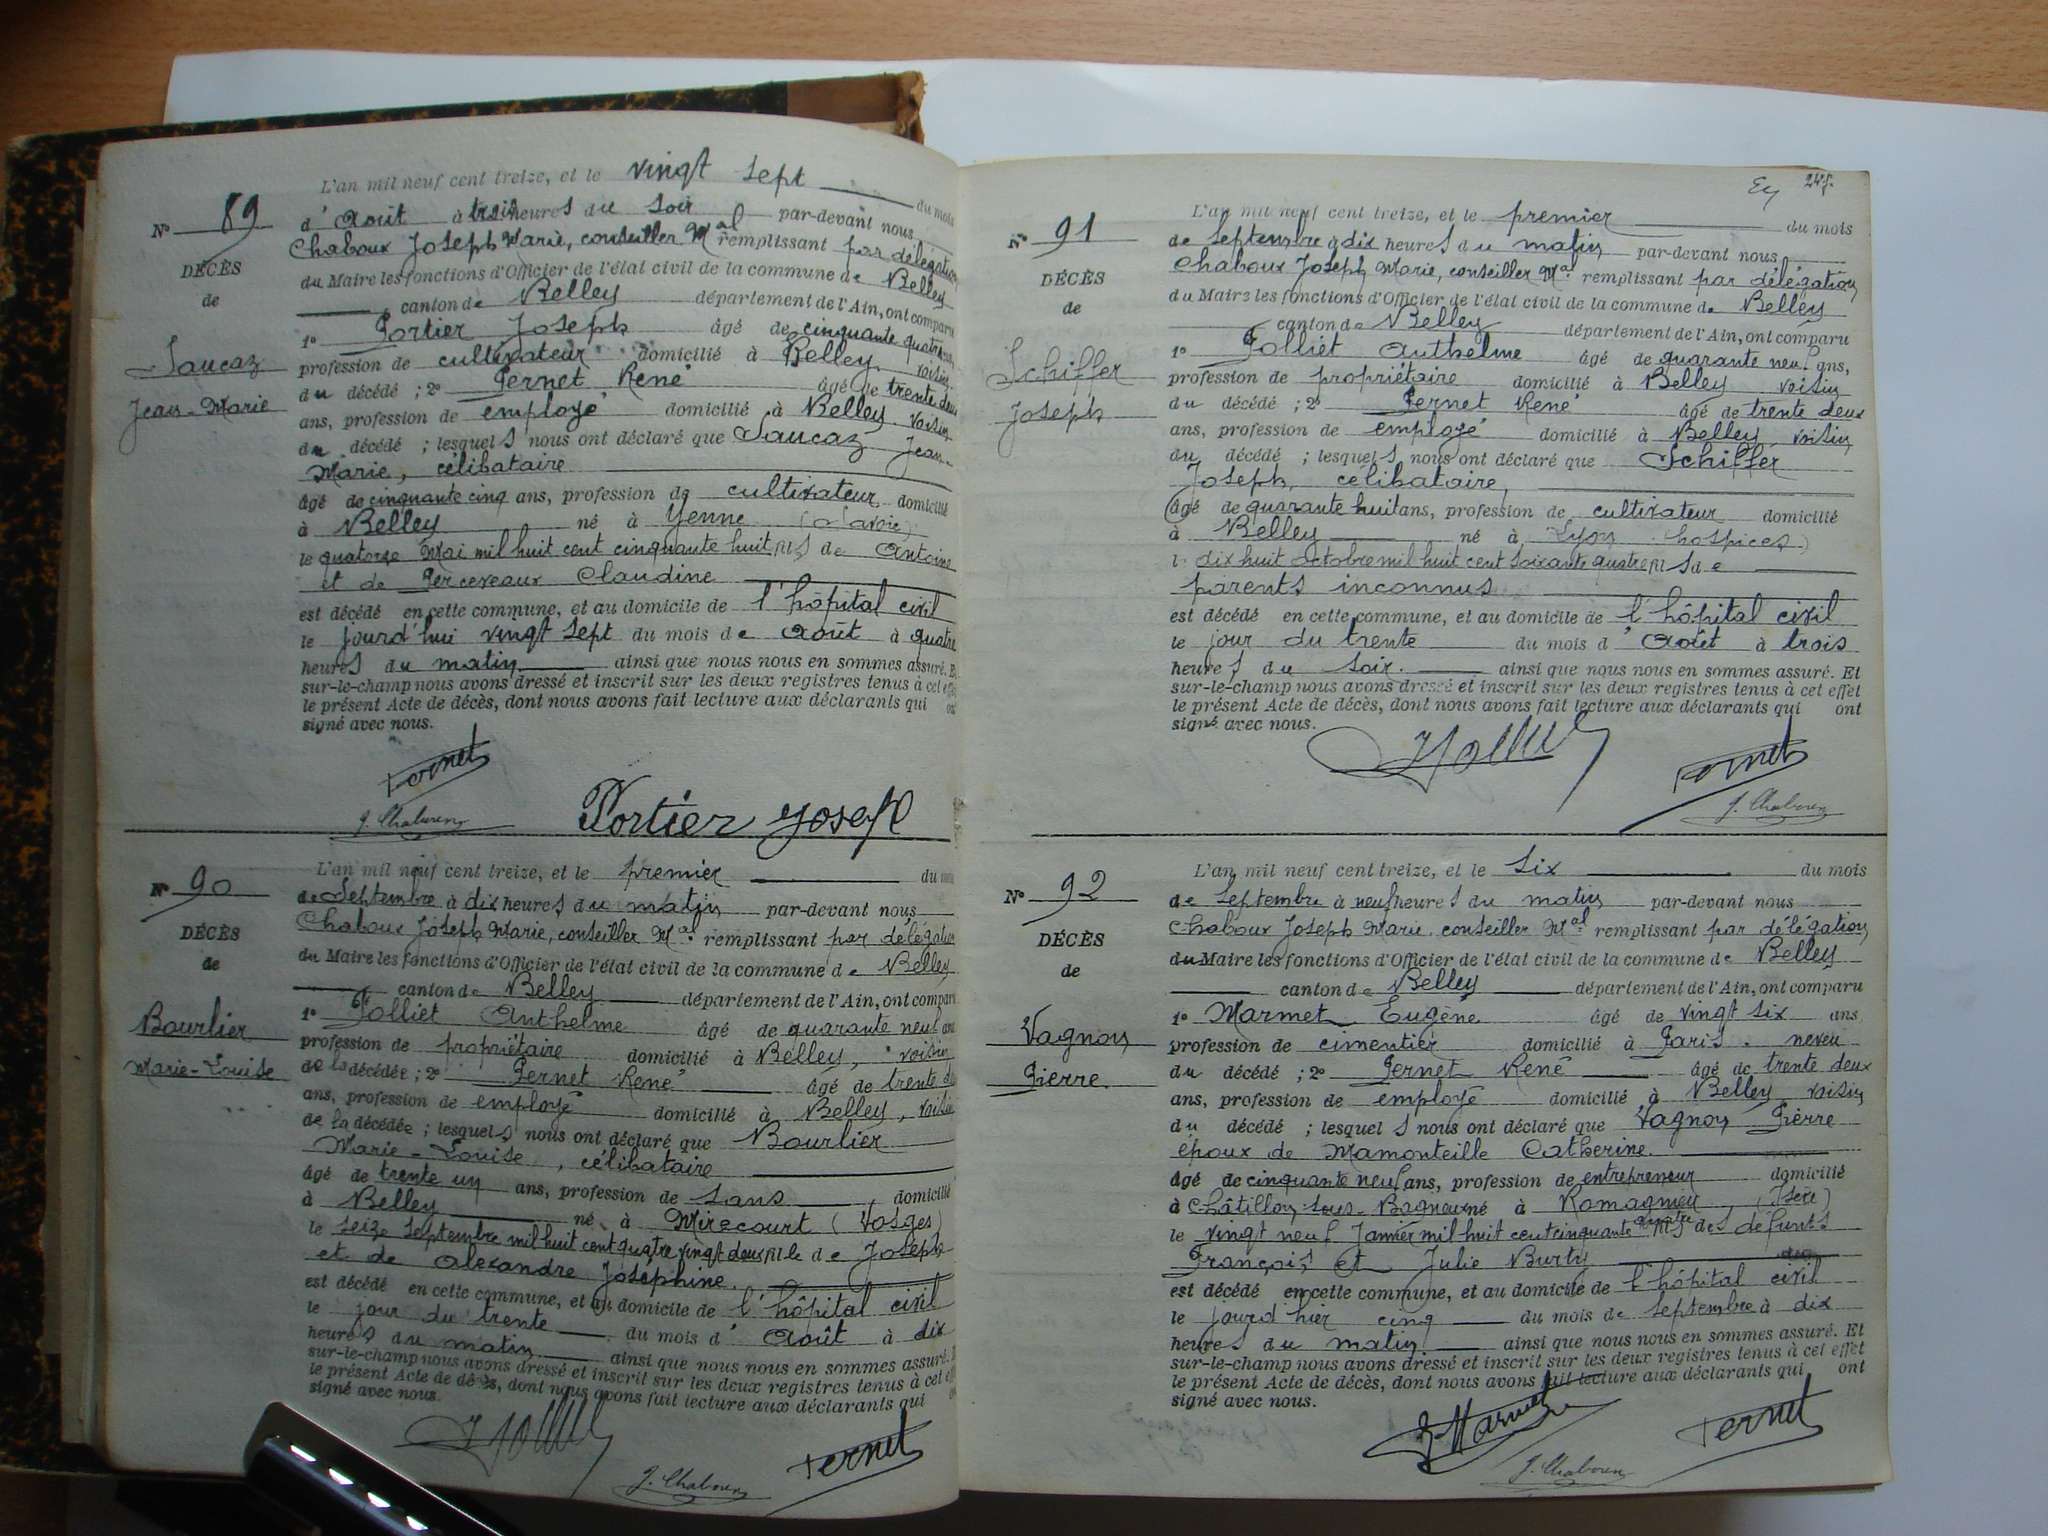 L'an mil neuf cent treize, et le vingt sept du mois
N° 89
d'Août à trois heures du soir par-devant nous
Chaboux Joseph Marie, conseiller Mal remplissant par délégation
DÉCÈS
du Maire les fonctions d'Officier de l'état civil de la commune de Belley
de
canton de Belley département de l'Ain, ont comparu
1° Portier Joseph âgé de cinquante quatre ans,
Saucaz
profession de cultivateur domicilié à Belley, voisin
Jean-Marie
du décédé ; 2° Pernet René âgé de trente deux
ans, profession de employé domicilié à Belley, voisin
du décédé ; lesquels nous ont déclaré que Saucaz Jean-
Marie, célibataire
âgé de cinquante cinq ans, profession de cultivateur domicilié
à Belley né à Yenne (Savoie)
le quatorze Mai mil huit cent cinquante huit, fils de Antoine
et de Perceveaux Claudine
est décédé en cette commune, et au domicile de l'hôpital civil
le jourd'hui vingt sept du mois de Août à quatre
heures du matin ainsi que nous nous en sommes assuré. Et
sur-le-champ nous avons dressé et inscrit sur les deux registres tenus à cet effet
le présent Acte de décès, dont nous avons fait lecture aux déclarants qui ont
signé avec nous.
Pernet
J. Chaboux
Portier Joseph
L'an mil neuf cent treize, et le premier du mois
N° 90
de Septembre à dix heures du matin par-devant nous
Chaboux Joseph Marie, conseiller Mal remplissant par délégation
DÉCÈS
du Maire les fonctions d'Officier de l'état civil de la commune de Belley
de
canton de Belley département de l'Ain, ont comparu
Bourlier
1° Jolliet Anthelme âgé de quarante neuf ans
profession de propriétaire domicilié à Belley, voisin
Marie-Louise
de la décédée ; 2° Pernet René âgé de trente deux
ans, profession de employé domicilié à Belley, voisin
de la décédée ; lesquels nous ont déclaré que Bourlier
Marie-Louise, célibataire
âgé de trente un ans, profession de sans domicilié
à Belley né à Mirecourt (Vosges)
le seize Septembre mil huit cent quatre vingt deux fille de Joseph
et de Alexandre Joséphine.
est décédé en cette commune, et au domicile de l'hôpital civil
le jour du trente du mois d'Août à dix
heures du matin ainsi que nous nous en sommes assuré. Et
sur-le-champ nous avons dressé et inscrit sur les deux registres tenus à cet effet
le présent Acte de décès, dont nous avons fait lecture aux déclarants qui ont
signé avec nous.
Jolliet
J. Chaboux
Pernet
247.
L'an mil neuf cent treize, et le premier du mois
N° 91
de Septembre à dix heures du matin par-devant nous
Chaboux Joseph Marie, conseiller Mal remplissant par délégation
DÉCÈS
du Maire les fonctions d'Officier de l'état civil de la commune de Belley
de
canton de Belley département de l'Ain, ont comparu
1° Jolliet Anthelme âgé de quarante neuf ans,
Schiffer
profession de propriétaire domicilié à Belley voisin
Joseph
du décédé ; 2° Pernet René âgé de trente deux
ans, profession de employé domicilié à Belley, voisin
du décédé ; lesquels nous ont déclaré que Schiffer
Joseph, célibataire,
âgé de quarante huit ans, profession de cultivateur domicilié
à Belley né à Lyon (hospices)
le dix huit octobre mil huit cent soixante quatre fils de
parents inconnus
est décédé en cette commune, et au domicile de l'hôpital civil
le jour du trente du mois d'Août à trois
heures du soir. ainsi que nous nous en sommes assuré. Et
sur-le-champ nous avons dressé et inscrit sur les deux registres tenus à cet effet
le présent Acte de décès, dont nous avons fait lecture aux déclarants qui ont
signé avec nous.
Jolliet
Pernet
J. Chaboux
L'an mil neuf cent treize, et le six du mois
N° 92
de Septembre à neuf heures du matin par-devant nous
Chaboux Joseph Marie, conseiller Mal remplissant par délégation
DÉCÈS
du Maire les fonctions d'Officier de l'état civil de la commune de Belley
de
canton de Belley département de l'Ain, ont comparu
1° Marmet Eugène âgé de vingt six ans
Vagnon
profession de cimentier domicilié à Paris. neveu
Pierre.
du décédé ; 2° Pernet René âgé de trente deux
ans, profession de employé domicilié à Belley, voisin
du décédé ; lesquels nous ont déclaré que Vagnon Pierre
époux de Mamonteille Catherine.
âgé de cinquante neuf ans, profession de entrepreneur domicilié
à Châtillon-sous-Bagneux né à Romagnieu (Isère)
le vingt neuf Janvier mil huit cent cinquante quatre fils des défunts
François et Julie Burty
est décédé en cette commune, et au domicile de l'hôpital civil
le jourd'hier cinq du mois de septembre à dix
heures du matin. ainsi que nous nous en sommes assuré. Et
sur-le-champ nous avons dressé et inscrit sur les deux registres tenus à cet effet
le présent Acte de décès, dont nous avons fait lecture aux déclarants qui ont
signé avec nous.
E. Marmet
Pernet
J. Chaboux